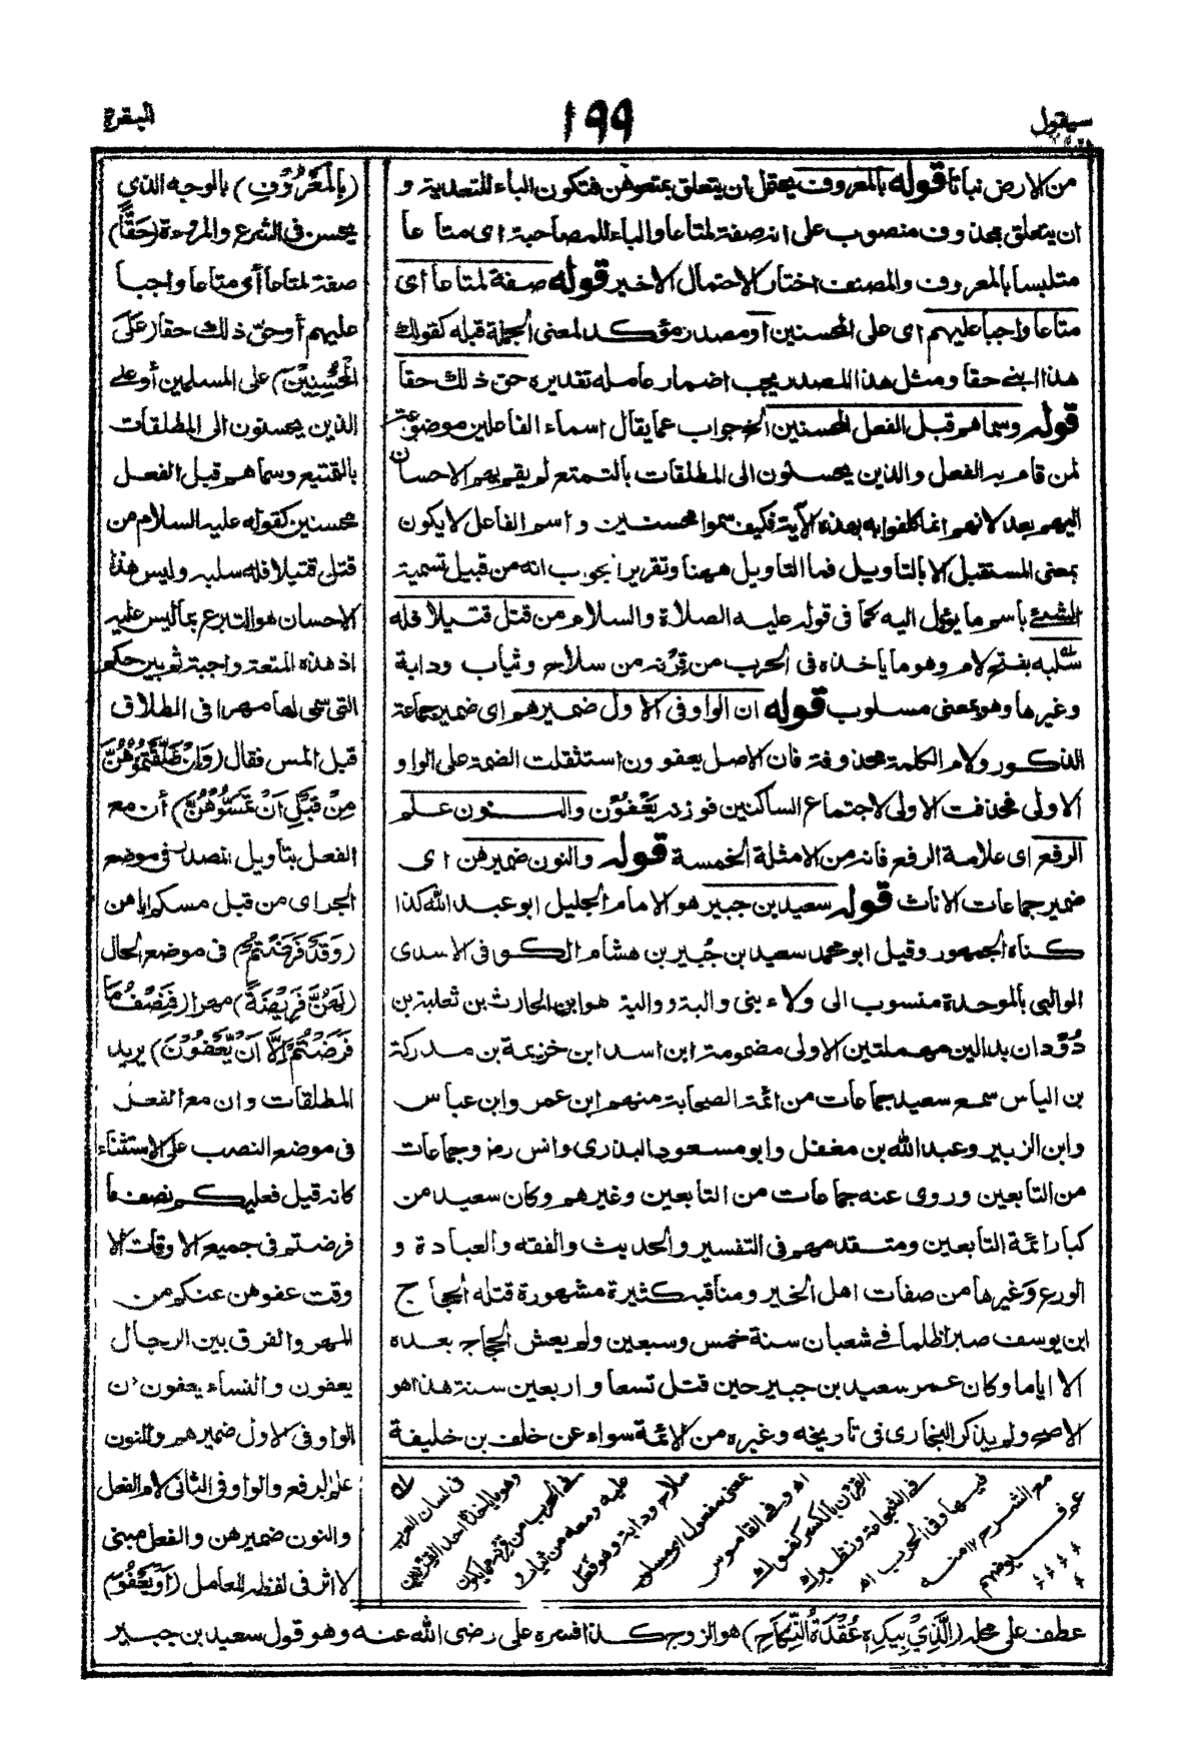 سيقول
١٩٩
البقرة
من الارض نباتا قوله بالمعروف يحتمل ان يتعلق بمتعوهن فتكون الباء للتعدية و
ان يتعلق بمحذوف منصوب على انه صفة لمتاعا والباء للمصاحبة اى متاعا
متلبسا بالمعروف والمصنف اختار الاحتمال الاخير قوله صفة لمتاعا اى
متاعا واجبا عليهم اى على المحسنين او مصدر مؤكد لمعنى الجملة قبله كقولك
هذا ابنى حقا ومثل هذا المصدر يجب اضمار عامله تقديره حق ذلك حقا
قوله وسماهم قبل الفعل المحسنين الخ جواب عما يقال اسماء الفاعلين موضوعة
لمن قام به الفعل والذين يحسنون الى المطلقات بالتمتع لم يقم بهم الاحسان
اليهم بعد لانهم انما كلفوا به بهذه الآية فكيف سموا محسنين و اسم الفاعل لا يكون
بمعنى المستقبل الا بالتاويل فما التاويل ههنا وتقرير الجوب انه من قبيل تسمية
الشئ باسم ما يؤل اليه كما فى قوله عليه الصلاة والسلام من قتل قتيلا فله
سلبه بفتح لام وهو ما ياخذه فى الحرب من قرنه من سلاح وثياب ودابة
وغيرها وهو بمعنى مسلوب قوله ان الواو فى الاول ضميرهم اى ضمير جماعة
الذكور ولام الكلمة محذوفة فان الاصل يعفوون استثقلت الضمة على الواو
الاولى فحذفت الاولى لاجتماع الساكنين فوزنه يَعْفُوْنَ والنون علم
الرفع اى علامة الرفع فانه من الامثلة الخمسة قوله والنون ضميرهن اى
ضمير جماعات الاناث قوله سعيد بن جبير هو الامام الجليل ابو عبد الله كذا
كناه الجمهور وقيل ابو محمد سعيد بن جُبير بن هشام الكوفى الاسدى
الوالبى بالموحدة منسوب الى ولاء بنى والبة ووالبة هو ابن الحارث بن ثعلبة بن
دُوْدان بدالين مهملتين الاولى مضمومة ابن اسد ابن خزيمة بن مدركة
بن الياس سمع سعيد جماعات من ائمة الصحابة منهم ابن عمر وابن عباس
وابن الزبير وعبد الله بن مغفل وابو مسعود البدرى وانس رض وجماعات
من التابعين وروى عنه جماعات من التابعين وغيرهم وكان سعيد من
كبار ائمة التابعين ومتقدميهم فى التفسير والحديث والفقه والعبادة و
الورع وغيرها من صفات اهل الخير ومناقبه كثيرة مشهورة قتله الحجاج
ابن يوسف صبرا ظلما فى شعبان سنة خمس وسبعين ولم يعش الحجاج بعده
الا اياما وكان عمر سعيد بن جبير حين قتل تسعا و اربعين سنة هذا هو
الاصح ولم يذكر البخارى فى تاريخه وغيره من الائمة سواء عن خلف بن خليفة
(بِالْمَعْرُوْفِ) بالوجه الذى
يحسن فى الشرع والمروءة (حَقًّا)
صفة لمتاعا أى متاعا واجبا
عليهم أو حق ذلك حقا (عَلَى
الْمُحْسِنِيْنَ) على المسلمين أو على
الذين يحسنون الى المطلقات
بالتمتيع وسماهم قبل الفعل
محسنين كقوله عليه السلام من
قتل قتيلا فله سلبه وليس هذا
الاحسان هو التبرع بما ليس عليه
اذ هذه المتعة واجبة ثم بين حكم
التى سمى لها مهرا فى الطلاق
قبل المس فقال (وَاِنْ طَلَّقْتُمُوْهُنَّ
مِنْ قَبْلِ اَنْ تَمَسُّوْهُنَّ) أن مع
الفعل بتاويل المصدر فى موضع
الجر اى من قبل مسكم اياهن
(وَقَدْ فَرَضْتُمْ) فى موضع الحال
(لَهُنَّ فَرِيْضَةً) مهرا (فَنِصْفُ مَا
فَرَضْتُمْ اِلَّا اَنْ يَّعْفُوْنَ) يريد
المطلقات وان مع الفعل
فى موضع النصب على الاستثناء
كانه قيل فعليكم نصف ما
فرضتم فى جميع الاوقات الا
وقت عفوهن عنكم من
المهر والفرق بين الرجال
يعفون والنساء يعفون ان
الواو فى الاول ضميرهم والنون
علم الرفع والواو فى الثانى لام الفعل
والنون ضميرهن والفعل مبنى
لا اثر فى لفظه للعامل (اَوْ يَعْفُوَ)
عطف على محله (الَّذِيْ بِيَدِهٖ عُقْدَةُ النِّكَاحِ) هو الزوج كذا فسره على رضى الله عنه وهو قول سعيد بن جبير
فى لسان العرب
وهو ما ياخذه احد القرنين
فى الحرب من قرنه مما يكون
عليه ومعه من ثياب و
سلاح ودابة وهو فعل
بمعنى مفعول اى مسلوب
اه وفى القاموس
القرن بالكسر كفوك
فى الشجاعة ونظيرك
فيها وفى الحرب اه
مع الشرح ١٢ منه